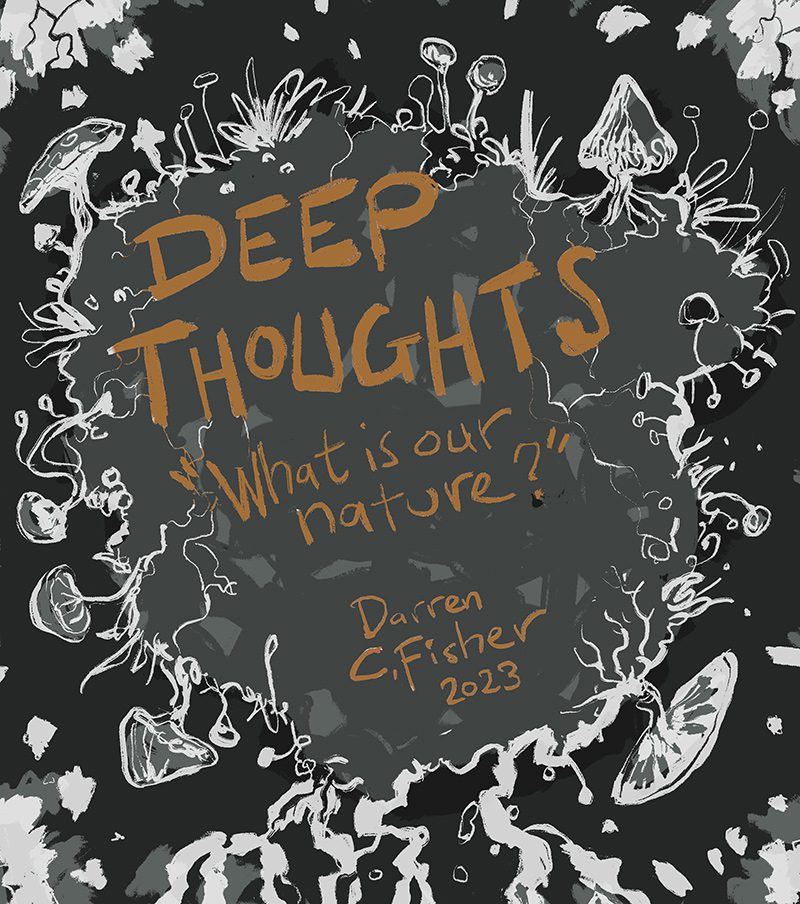 DEEP
THOUGHTS
"What is our
nature?"
Darren
C. Fisher
2023